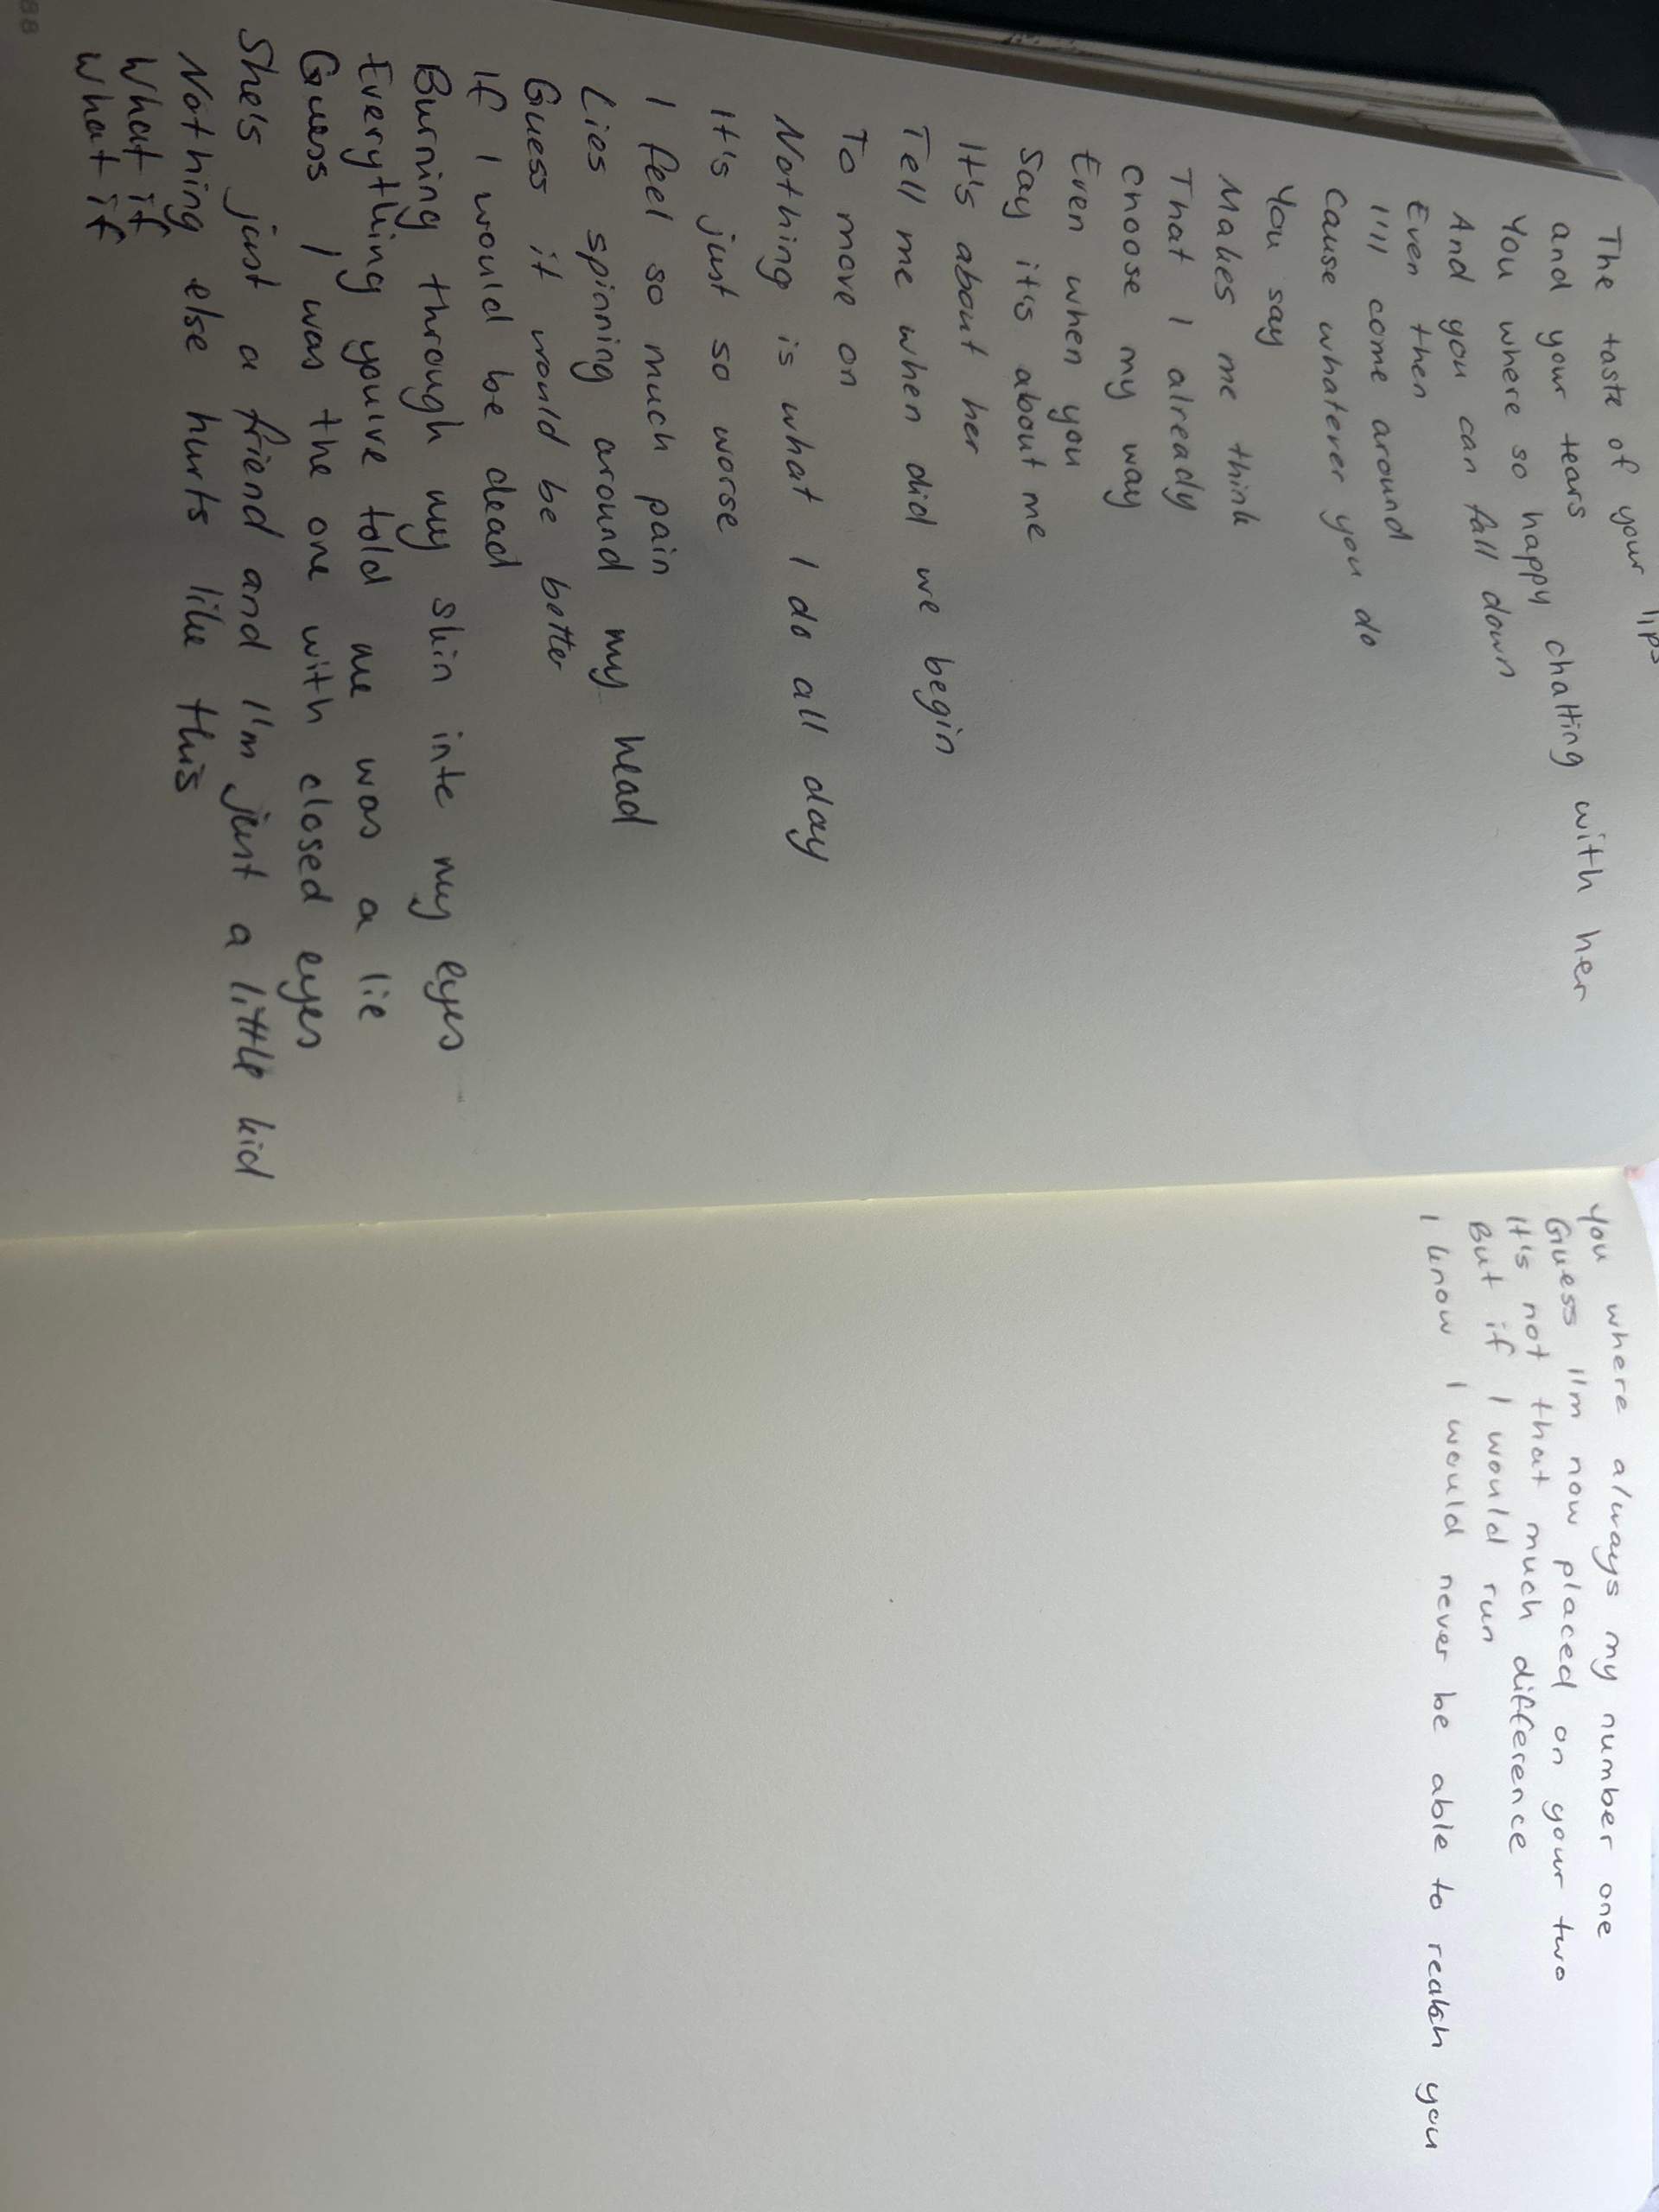 The taste of your lips
and your tears
You where so happy chatting with her
And you can fall down
Even then
I'll come around
Cause whatever you do
You say
Makes me think
That I already
choose my way
Even when you
Say it's about me
It's about her
Tell me when did we begin
To move on
Nothing is what I do all day
It's just so worse
I feel so much pain
Lies spinning around my head
Guess it would be better
If I would be dead
Burning through my skin inte my eyes
Everything you've told me was a lie
Guess I was the one with closed eyes
She's just a friend and I'm just a little kid
Nothing else hurts like this
What if
What if
88
You where always my number one
Guess I'm now placed on your two
It's not that much difference
But if I would run
I know I would never be able to reach you